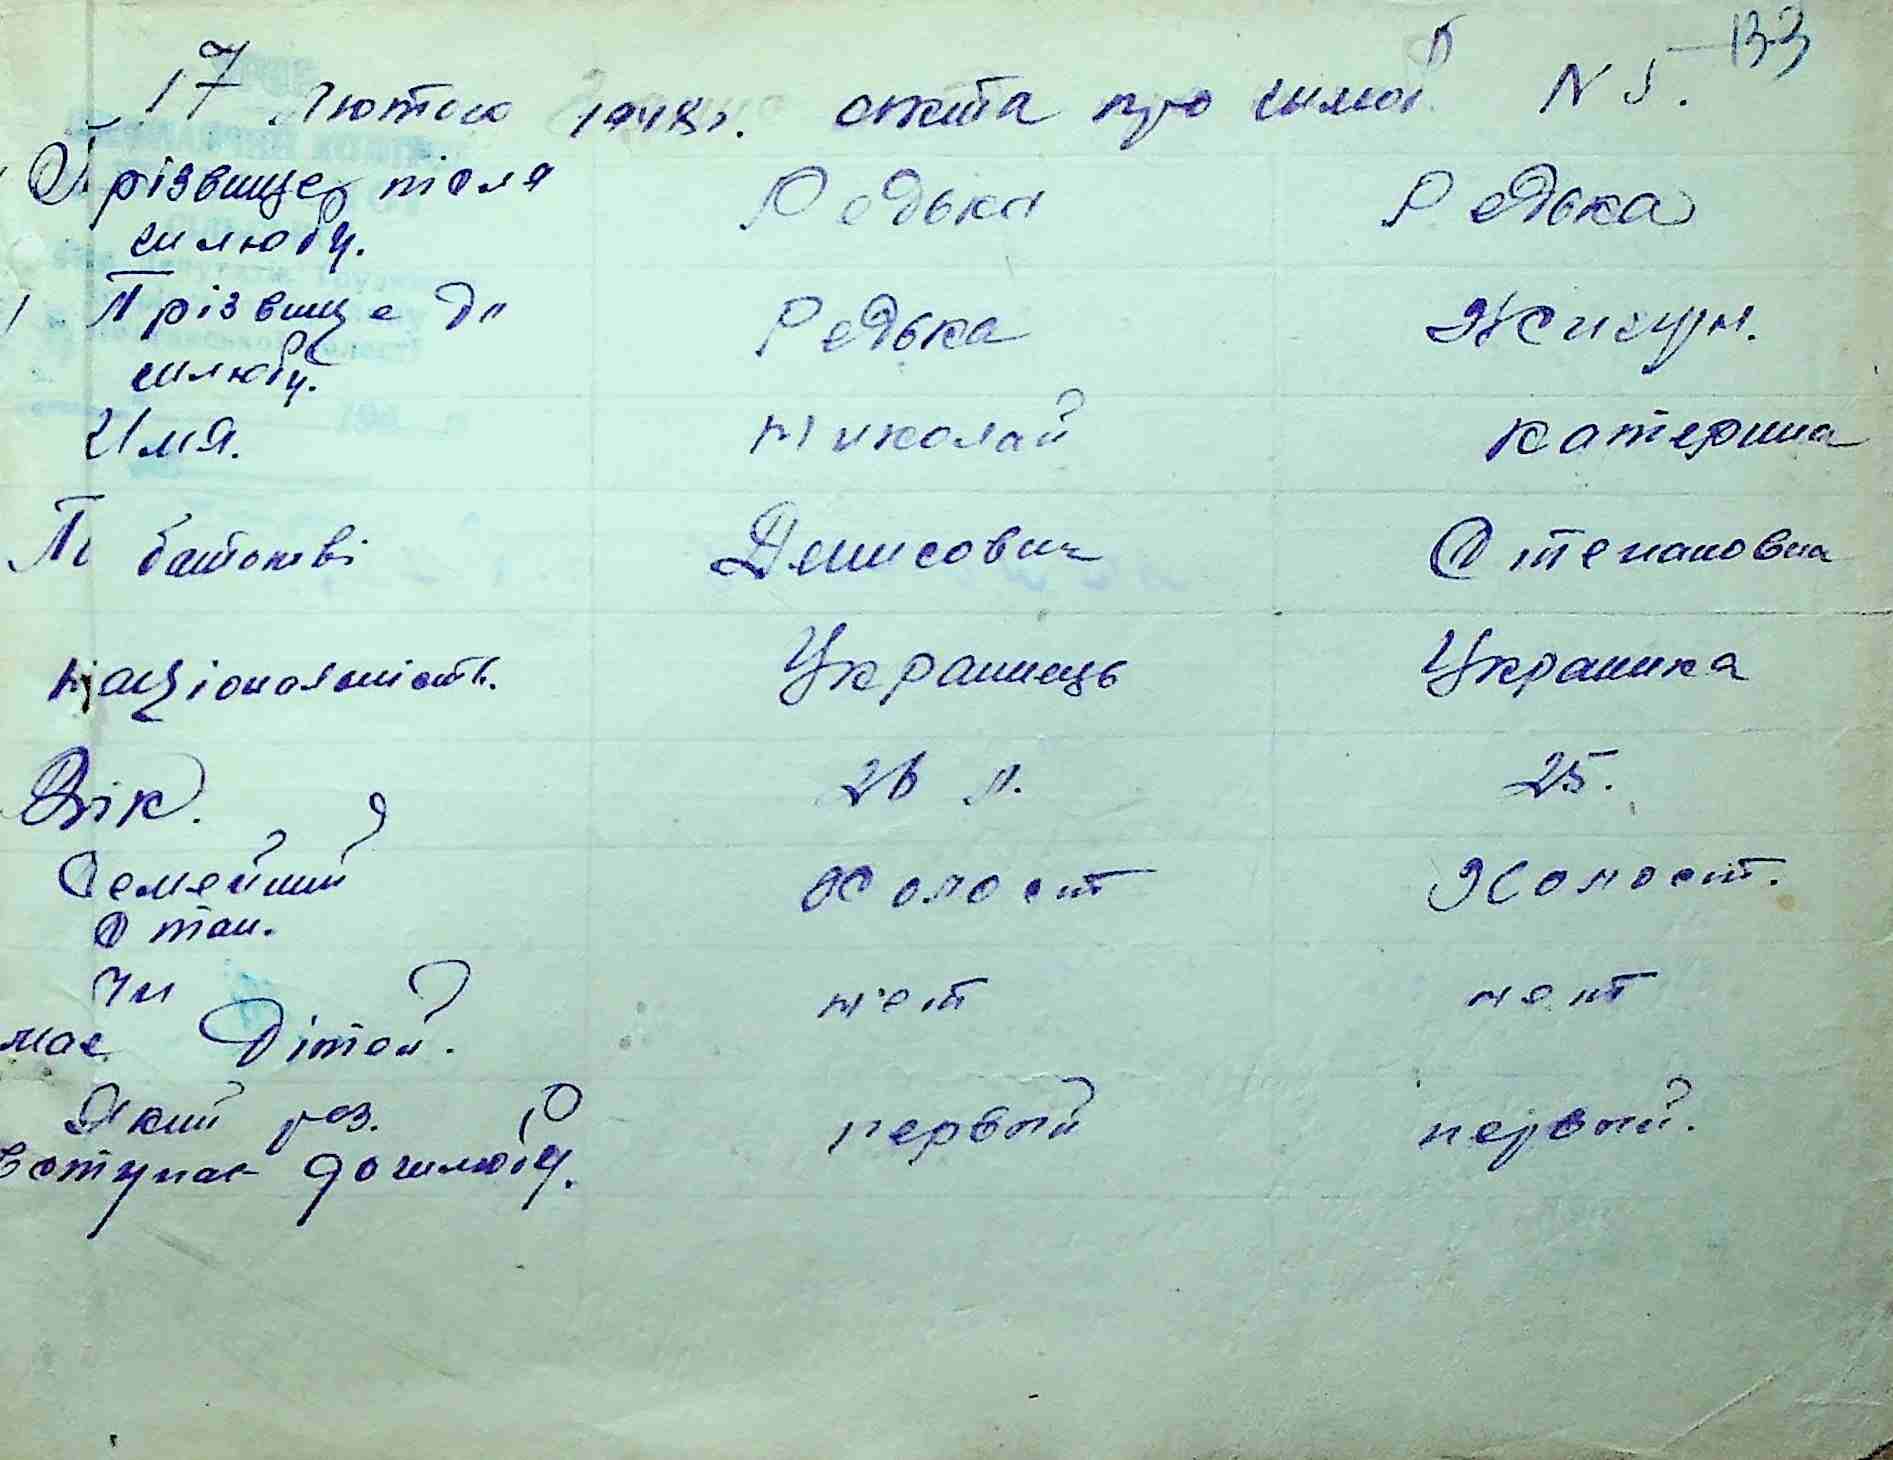 133
17 Лютого 1948г. акта про шлюб N 5.
Прізвище після Редька Редька
шлюбу.
Прізвище до Редька
шлюбу.
Имя. Николай Катерина
По батькові Денисович Степановна
Національність. Украинець Украинка
Вік. 26 л. 25.
Семейний Холост Холост.
Стан.
Чи нет нет
має Дітей.
Який раз. первый первый.
вступає до шлюбу.